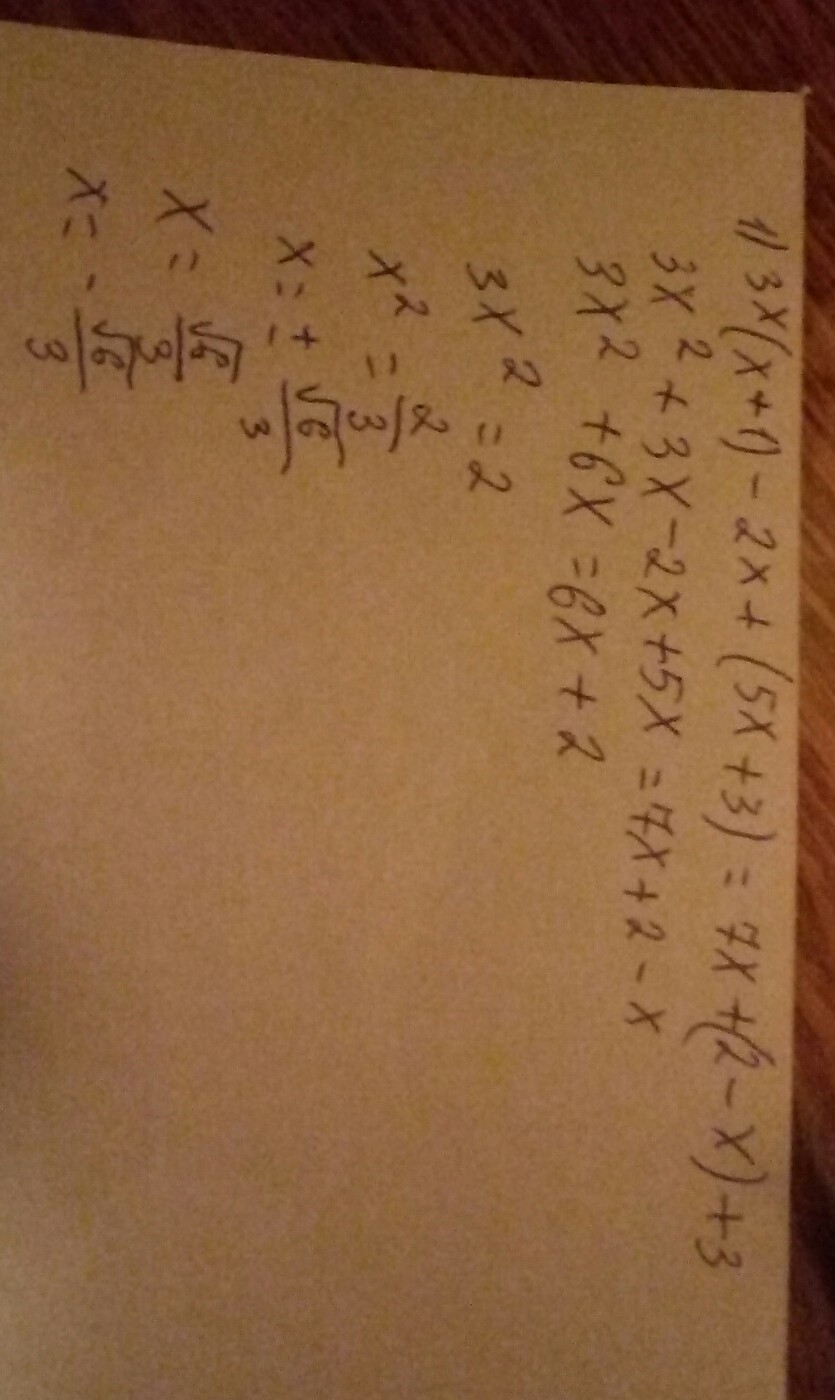 1) 3x(x+1) - 2x + (5x+3) = 7x + (2-x) + 3
3x² + 3x - 2x + 5x = 7x + 2 - x
3x² + 6x = 6x + 2
3x² = 2
x² = 2/3
x = ± √6/3
x = √6/3
x = - √6/3